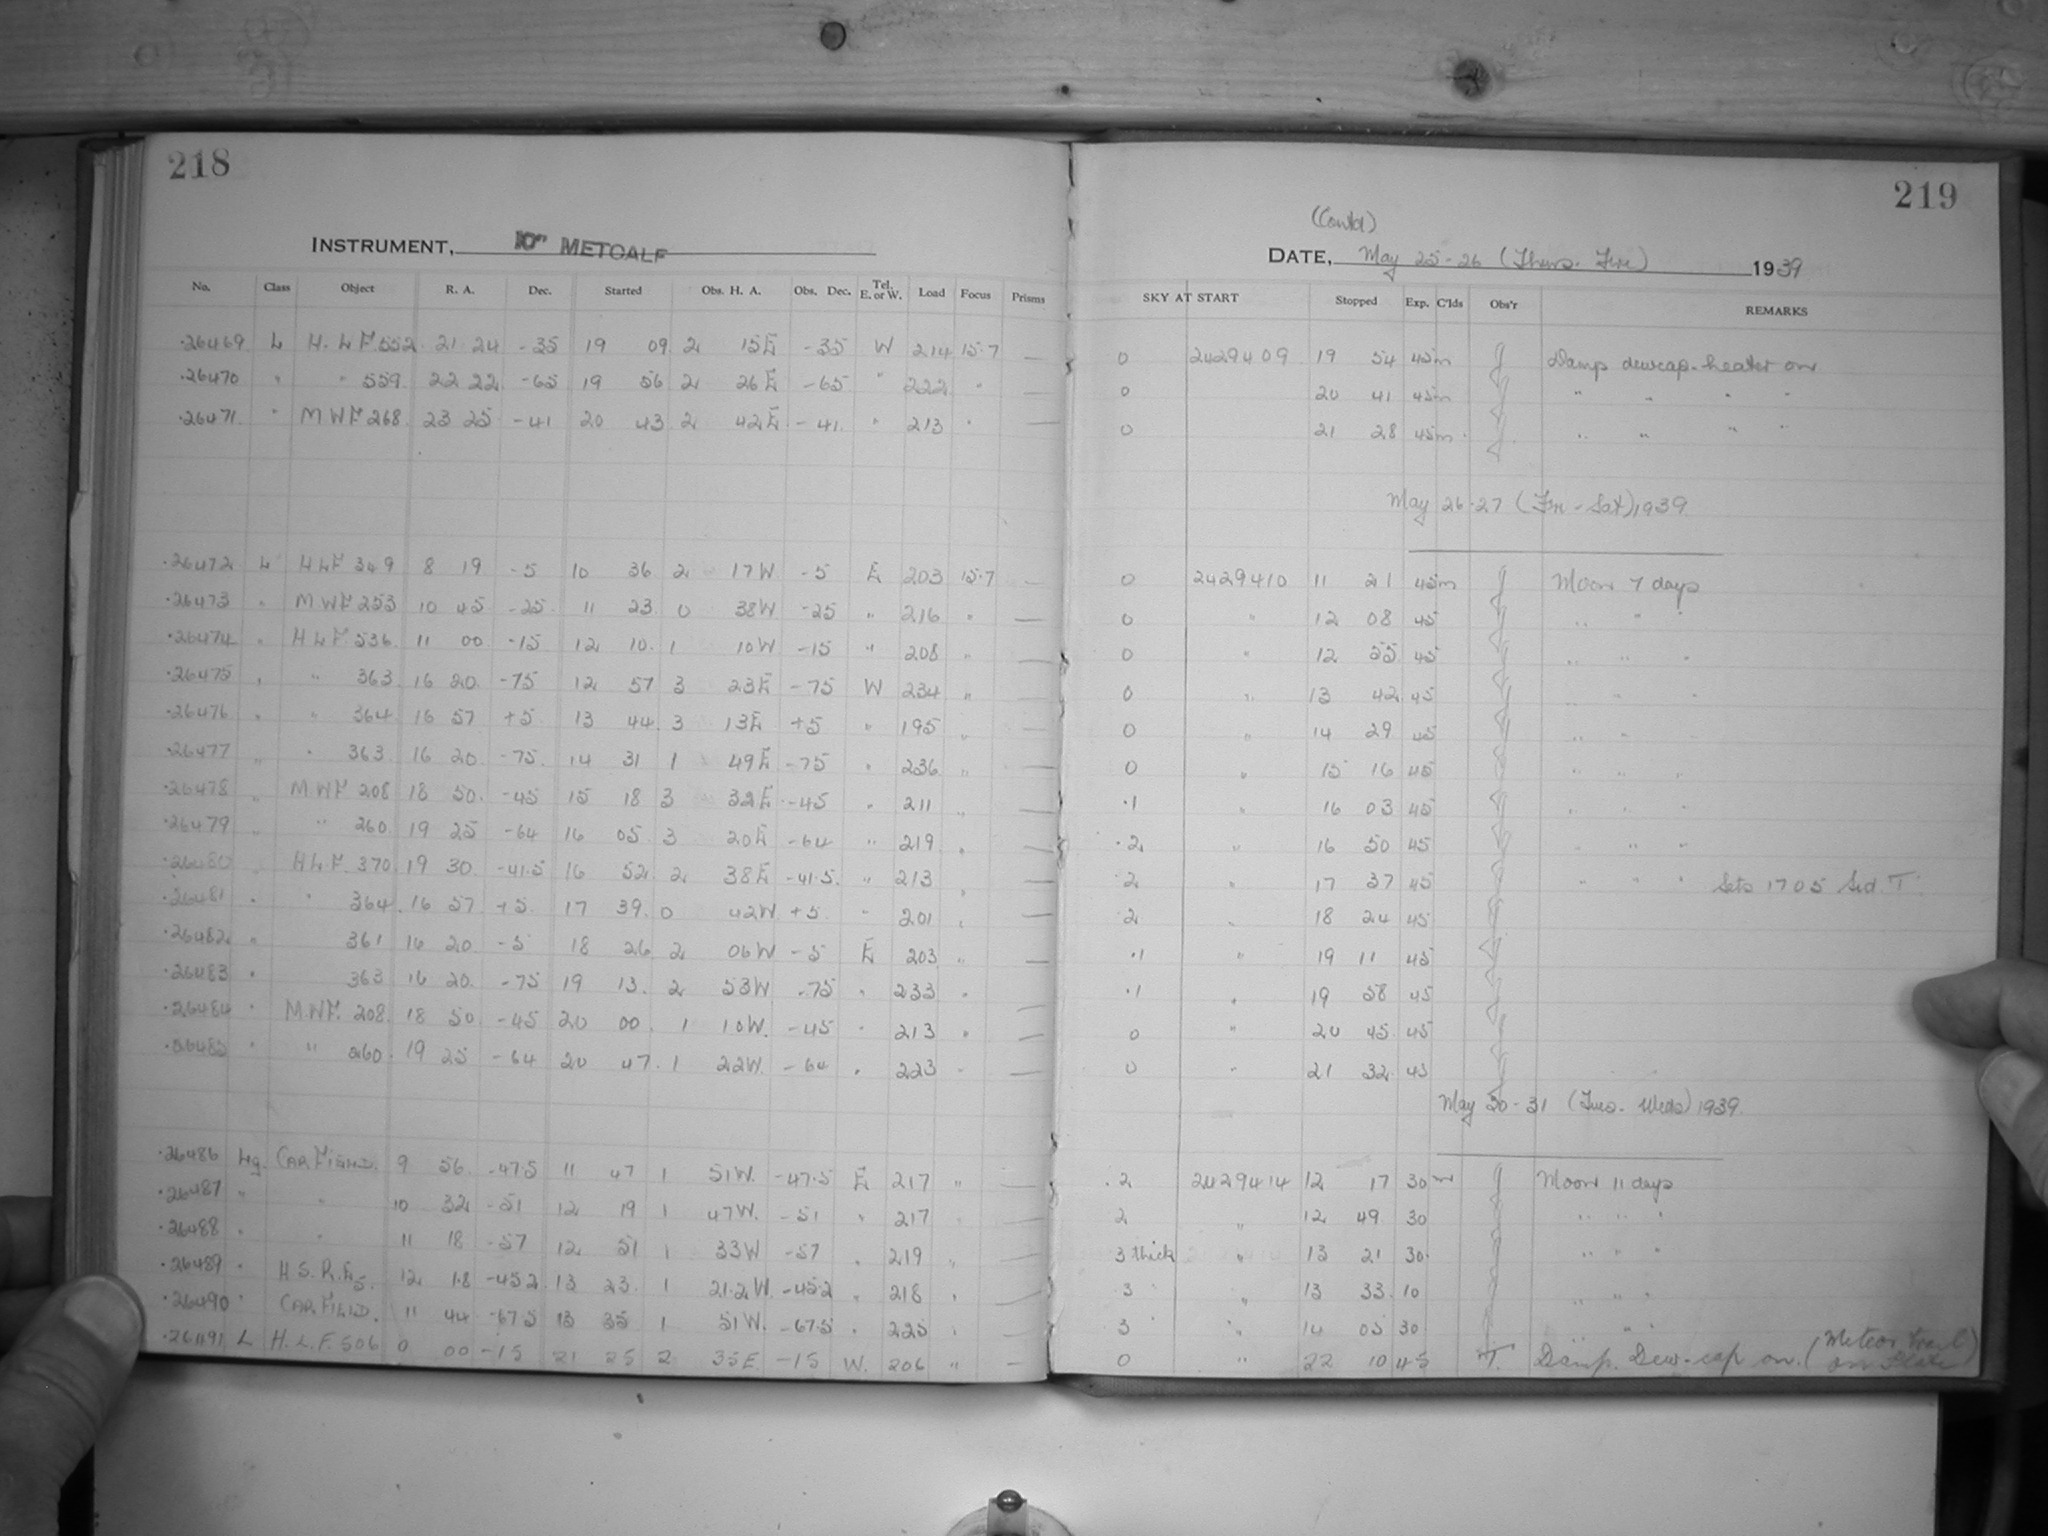 218
INSTRUMENT, 10" METCALF
No. Class Object R. A. Dec. Started Obs. H. A. Obs. Dec. Tel. E. or W. Load Focus Prisms
26469 L H.L.F 552 21 24 -35 19 09 2 15E -35 W 214 15.7 —
26470 " " 559 22 22 -65 19 56 2 26E -65 " 222 "
26471 " MWF 268 23 25 -41 20 43 2 42E -41 " 213 " —
26472 L HLF 349 8 19 -5 10 36 2 17W -5 E 203 15.7 —
26473 " MWF 253 10 45 -25 11 23 0 38W -25 " 216 " —
26474 " HLF 536 11 00 -15 12 10 1 10W -15 " 208 " —
26475 " " 363 16 20 -75 12 57 3 23E -75 W 234 " —
26476 " " 364 16 57 +5 13 44 3 13E +5 " 195 " —
26477 " " 363 16 20 -75 14 31 1 49E -75 " 236 " —
26478 " MWF 208 18 50 -45 15 18 3 32E -45 " 211 " —
26479 " " 260 19 25 -64 16 05 3 20E -64 " 219 " —
26480 " HLF 370 19 30 -41.5 16 52 2 38E -41.5 " 213 " —
26481 " " 364 16 57 +5 17 39 0 42W +5 " 201 " —
26482 " 361 16 20 -5 18 26 2 06W -5 E 203 " —
26483 " 363 16 20 -75 19 13 2 53W -75 " 233 " —
26484 " MWF. 208 18 50 -45 20 00 1 10W. -45 " 213 " —
26485 " " 260 19 25 -64 20 47 1 22W. -64 " 223 " —
26486 Lg. CAR FIELD. 9 56 -47.5 11 47 1 51W. -47.5 E 217 " —
26487 " " 10 32 -51 12 19 1 47W. -51 " 217 " —
26488 " " 11 18 -57 12 51 1 33W -57 " 219 " —
26489 " H.S.R.E5. 12 1.8 -45.2 13 23 1 21.2W. -45.2 " 218 " —
26490 " CAR FIELD. 11 44 -67.5 13 35 1 51W. -67.5 " 225 " —
26491 L H.L.F. 506 0 00 -15 21 25 2 35E. -15 W. 206 " —
219
(Contd)
DATE, May 25-26 (Thurs. Fri) 1939
SKY AT START Stopped Exp. C'lds Obs'r REMARKS
0 2429409 19 54 45m J Damp dewcap-heater on
0 20 41 45m " " " "
0 21 28 45m " " " "
May 26-27 (Fri - Sat) 1939
0 2429410 11 21 45m J Moon 7 days
0 " 12 08 45 " " "
0 " 12 55 45 " " "
0 " 13 42 45 " " "
0 " 14 29 45 " " "
0 " 15 16 45 " " "
.1 " 16 03 45 " " "
.2 " 16 50 45 " " "
.2 " 17 37 45 " " " Sets 17 05 Sid. T.
.2 " 18 24 45
.1 " 19 11 45
.1 " 19 58 45
0 " 20 45 45
0 " 21 32 45
May 30-31 (Tues. Weds) 1939.
.2 2429414 12 17 30m J Moon 11 days
2 " 12 49 30 " " "
3 thick " 13 21 30 " " "
3 " " 13 33 10 " " "
3 " " 14 05 30 " " "
0 " 22 10 45 T. Damp. Dew-cap on. (Meteor trail
on Plate)